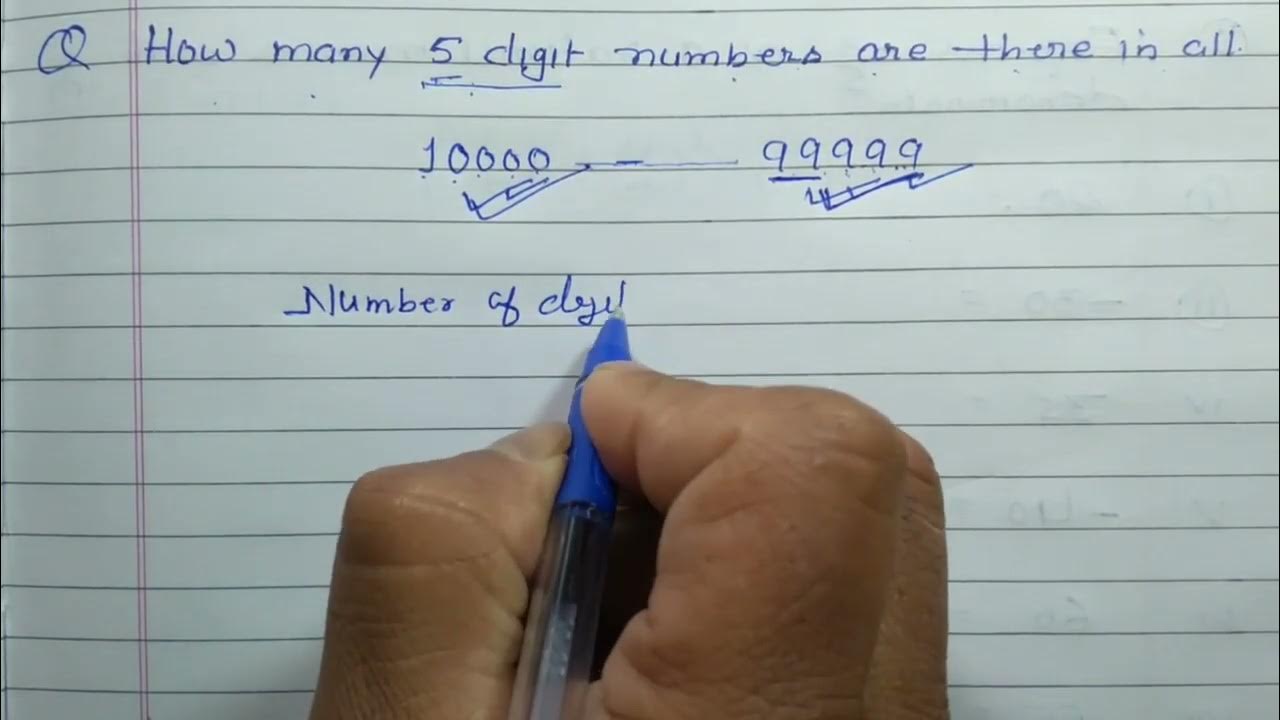 Q How many 5 digit numbers are there in all.
10000 — 99999
Number of